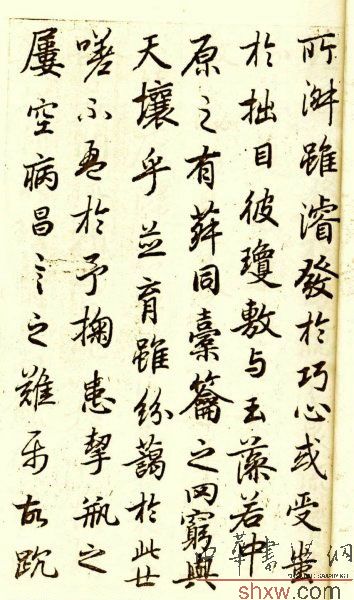 所淑雖濬發於巧心或受蚩
於拙目彼瓊敷与玉藻若中
原之有菽同橐籥之罔窮與
天壤乎並育雖紛藹於此世
嗟不盈於予掬患挈瓶之
屢空病昌言之難屬故踸
shxw.com